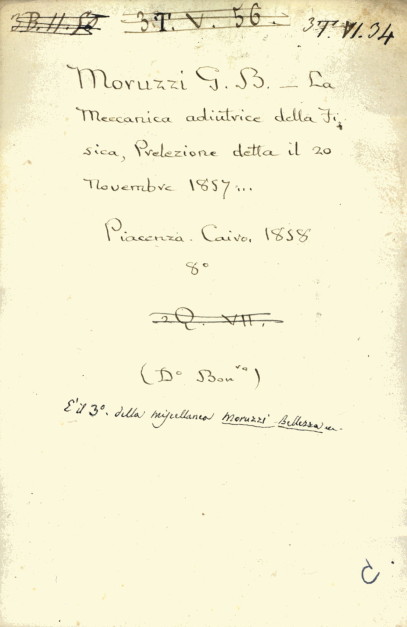 3 B. II. 52 3 T. V. 56. 3 T. VI. 34
Moruzzi G. B. — La
Meccanica adiutrice della Fi-
sica, Prelezione detta il 20
Novembre 1857...
Piacenza. Caivo, 1858
8°
2 Q. VII.
(D° Bon^va)
È il 3°. della miscellanea Moruzzi Bellezza ec.
C